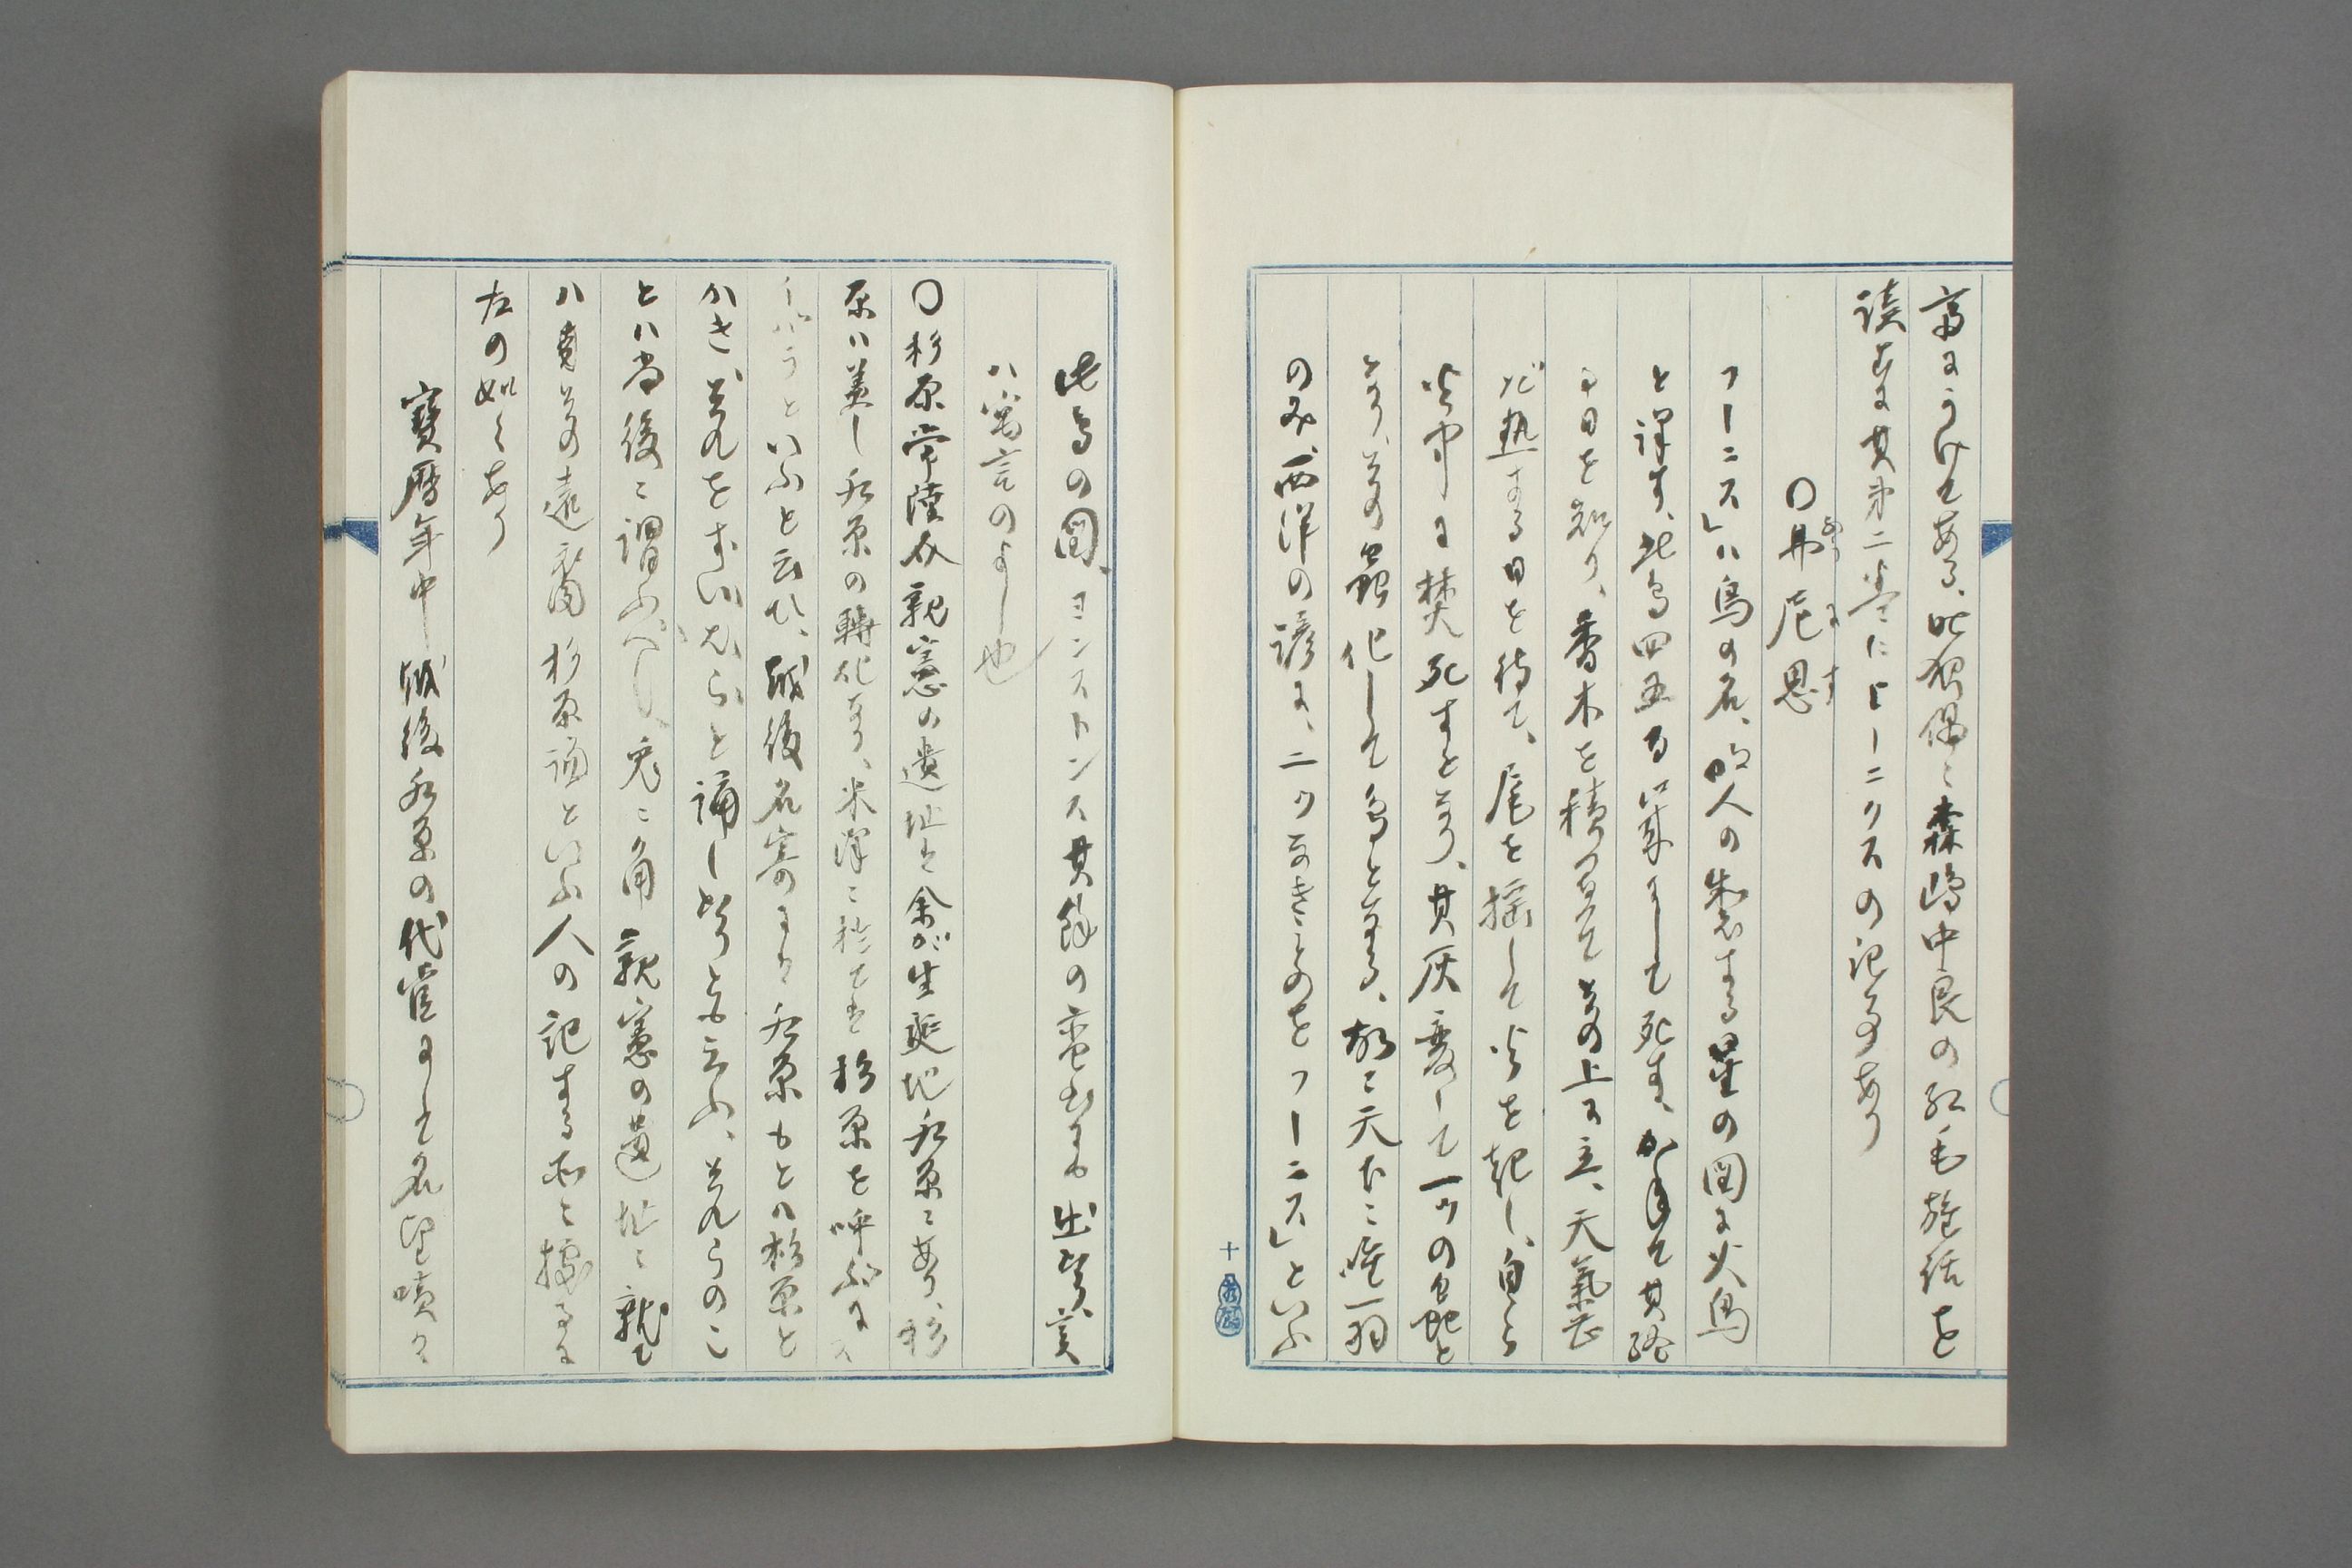 斎にうけてある、此頃偶々森嶋中良の紅毛雑話を
読むに其第二巻にヒーニクスの記事あり
〇弗尼思
ふつにす
フーニス」ハ鳥の名、明人の製する星の図に火鳥
と譯す、此鳥四五百歳にして死す、かねて其終
日を知り、香木を積置てその上に立、天氣甚
だ熱する日を待て、尾を揺して火を起し、自ら
火中に焚死すとなり、其灰変して一ツの虫と
なり、その虫化して鳥となる、故に天下に唯一羽
のみ、西洋の諺に、二ツなきものをフーニス」といふ
十
此鳥の図、ヨンストンス其餘の蛮書にも出せり、実
ハ寓言のよし也
〇杉原常陸介親憲の遺址は余が生誕地水原にあり、杉
原ハ蓋し水原の転化なり、米澤に於ても杉原を呼ぶにス
いばらといふと云ひ、越後名寄にも水原もとハ杉原と
かき、それをすいばらと誦しなりとも云ふ、それらのこ
とハ尚後に謂ふべし、兎に角親憲の遺址に就て
ハその遠裔杉原謙といふ人の記する所に據るに
左の如くあり
寳暦年中越後水原の代官にして名望嘖々